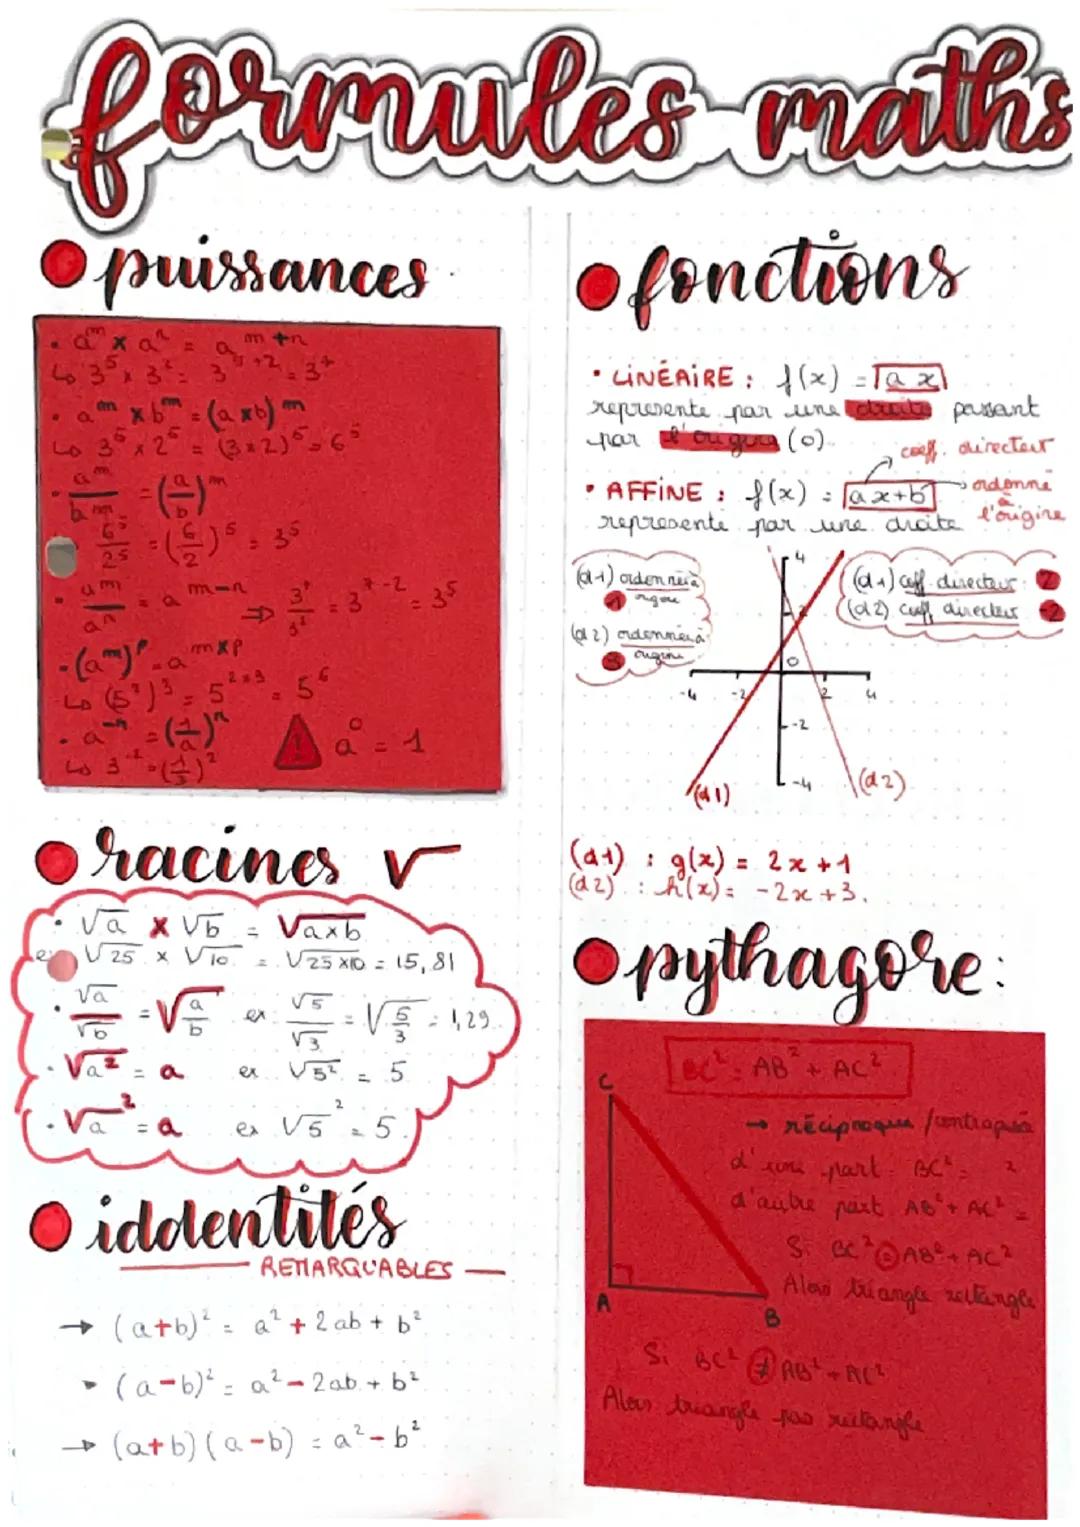 formules maths
puissances
• a^m × a^n = a^{m+n}
↳ 3^5 × 3^2 = 3^{5+2} = 3^7
• a^m × b^m = (a×b)^m
↳ 3^5 × 2^5 = (3×2)^5 = 6^5
• a^m/b^m = (a/b)^m
6^5/2^5 = (6/2)^5 = 3^5
• a^m/a^n = a^{m-n} ⇒ 3^7/3^2 = 3^{7-2} = 3^5
• (a^m)^p = a^{m×p}
↳ (5^2)^3 = 5^{2×3} = 5^6
• a^{-n} = (1/a)^n
↳ 3^{-2} = (1/3)^2
! a^0 = 1
racines √
• √a × √b = √a×b
ex √25 × √10 = √25×10 = 15,81
• √a/√b = √(a/b) ex √5/√3 = √(5/3) = 1,29
• √a² = a ex √5² = 5
• √a ² = a ex √5 ² = 5
iddentités
REMARQUABLES
→ (a+b)² = a² + 2ab + b²
→ (a-b)² = a² - 2ab + b²
→ (a+b)(a-b) = a² - b²
fonctions
• LINÉAIRE : f(x) = ax
represente par une droite passant
par l'origine (0).
coeff. directeur
• AFFINE : f(x) = ax+b
ordonné
à
l'origine
represente par une droite
(d1) ordonnée à
origine
1
(d2) ordonnée à
origine
3
(d1) coeff directeur : 2
(d2) coeff directeur -2
4
2
0
-4 -2 2 4
-2
-4
(d1)
(d2)
(d1) : g(x) = 2x+1
(d2) : h(x) = -2x+3.
pythagore:
BC² = AB² + AC²
C
A
B
→ réciproque /contraposé
d'une part BC² = ²
d'autre part AB² + AC² =
Si BC² = AB² + AC²
Alors triangle rectangle
Si BC² ≠ AB² + AC²
Alors triangle pas rectangle